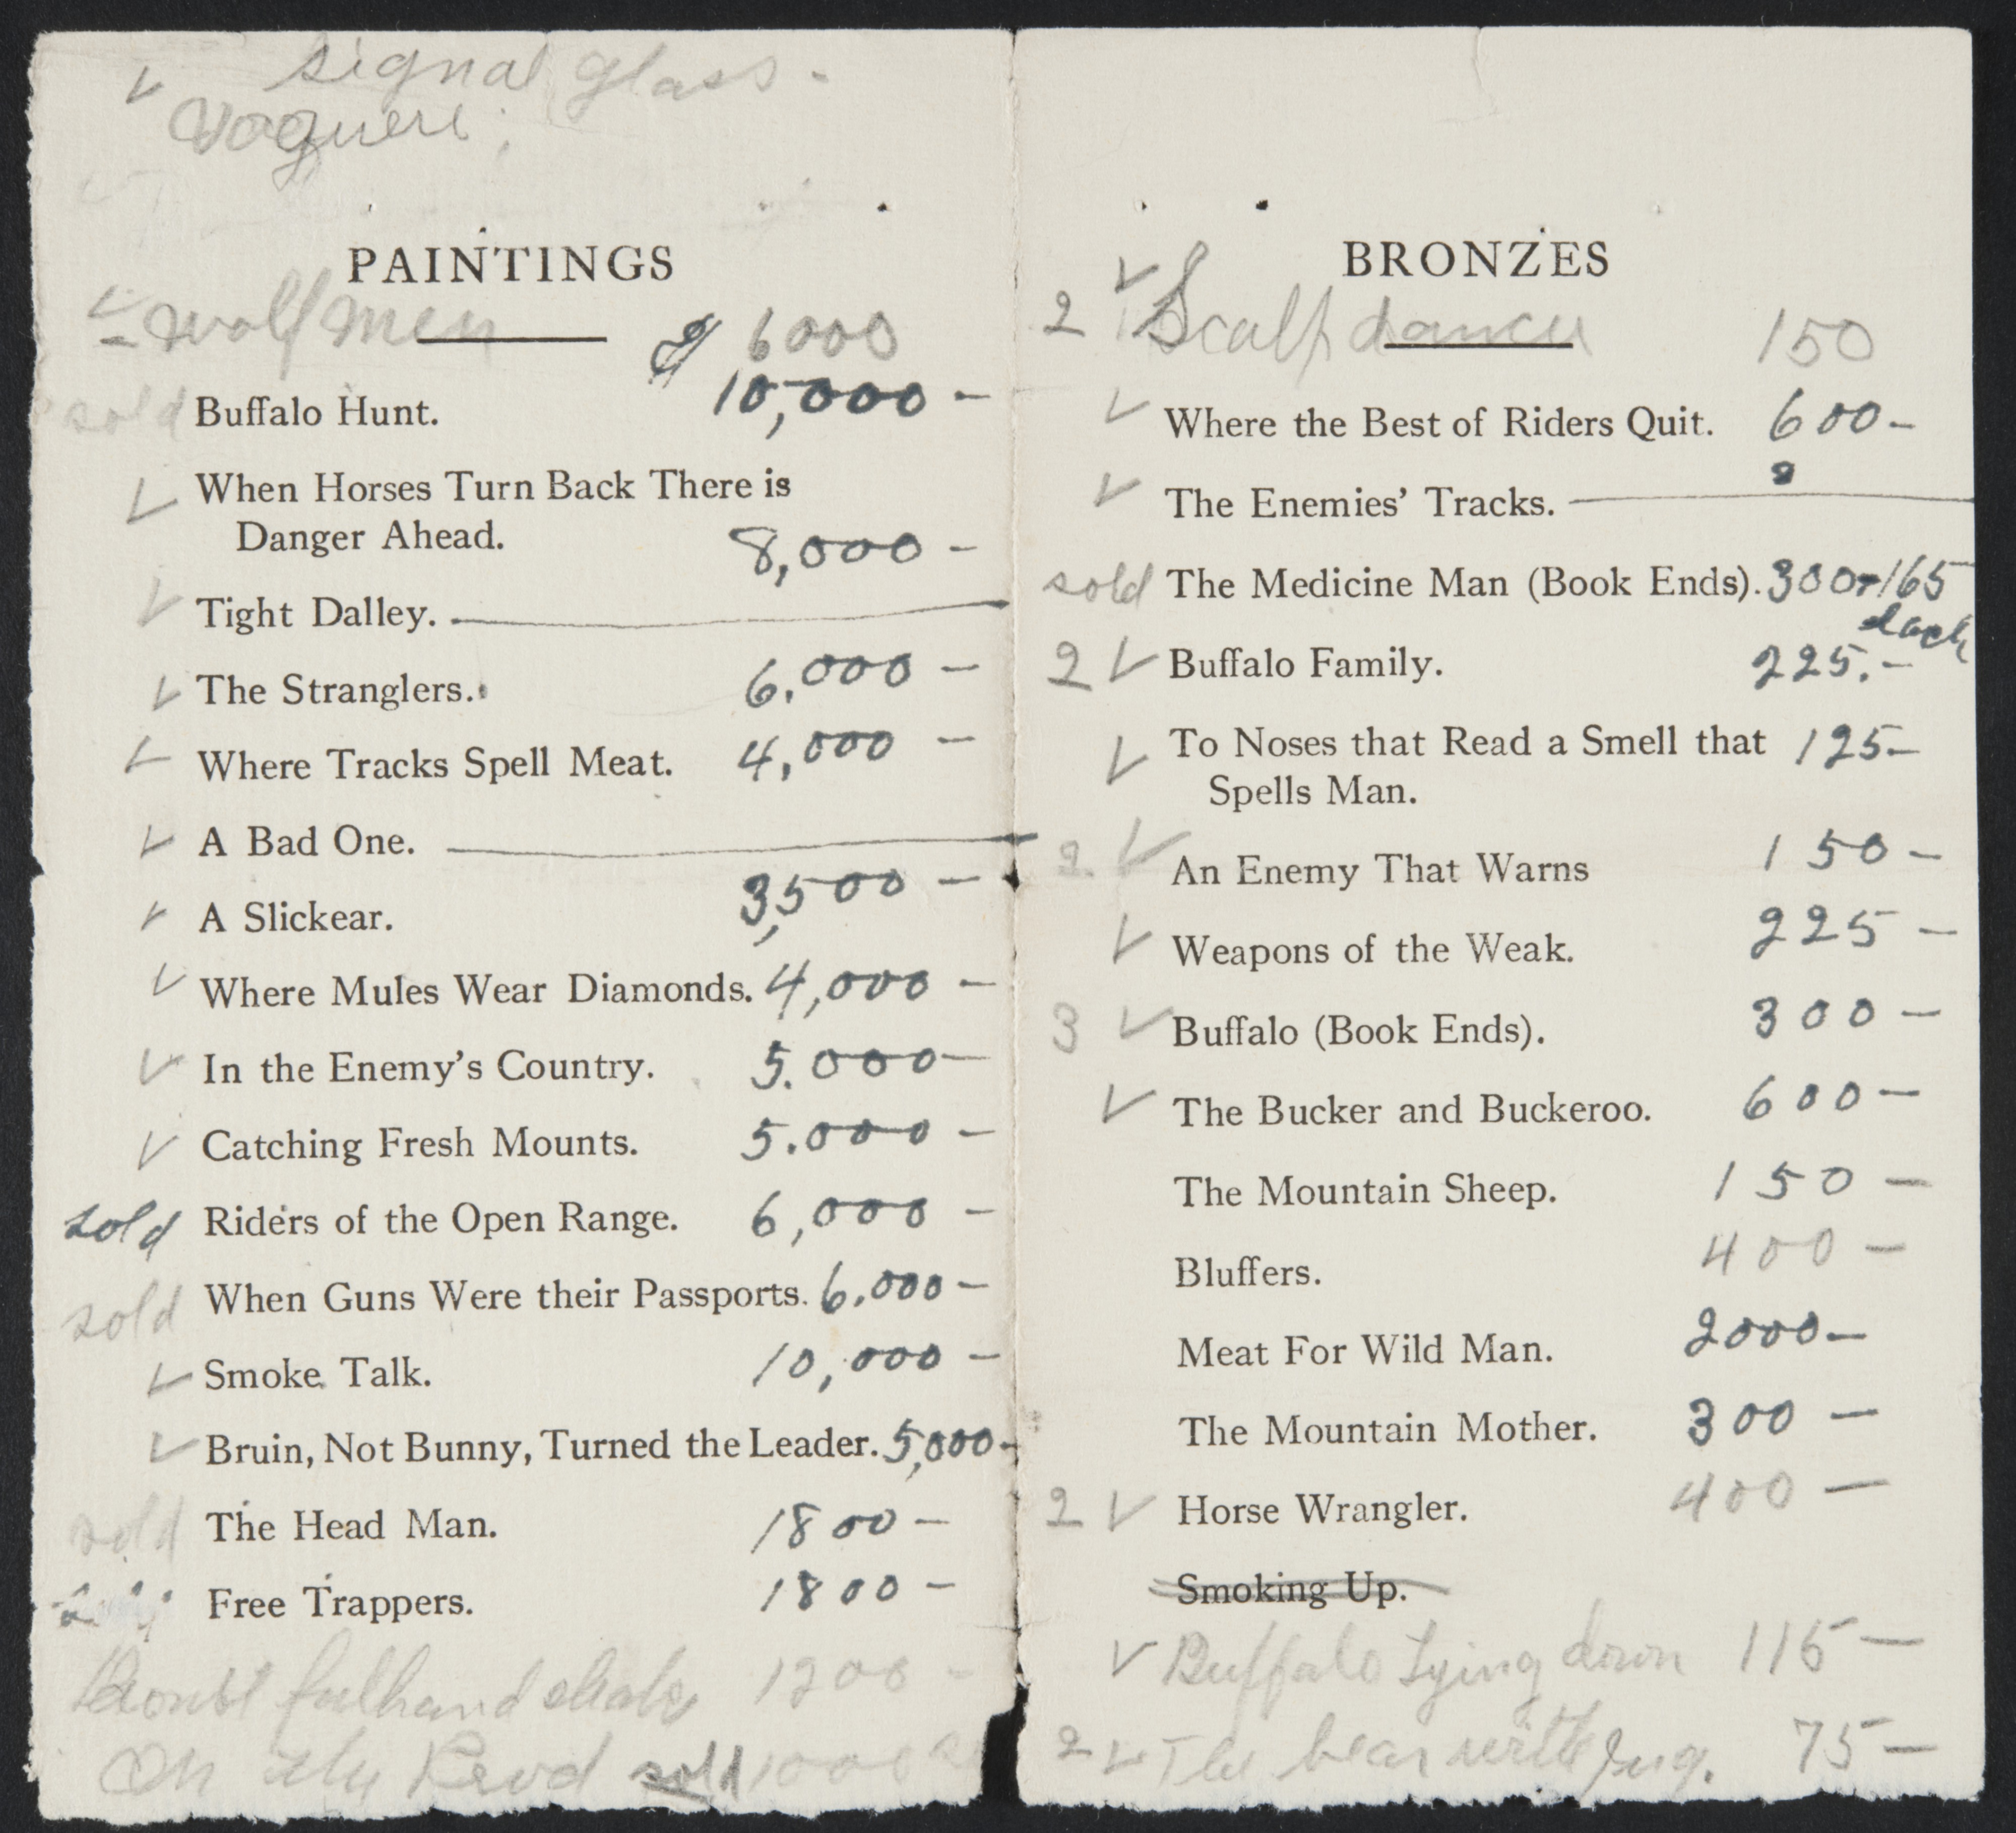 ✓ signal glass.
Vaquere
PAINTINGS
✓ wolf men $ 6000
sold Buffalo Hunt. 10,000 -
✓ When Horses Turn Back There is
Danger Ahead. 8,000 -
✓ Tight Dalley.
✓ The Stranglers. 6,000 -
✓ Where Tracks Spell Meat. 4,000 -
✓ A Bad One.
✓ A Slickear. 3,500 -
✓ Where Mules Wear Diamonds. 4,000 -
✓ In the Enemy's Country. 5.000 -
✓ Catching Fresh Mounts. 5.000 -
sold Riders of the Open Range. 6,000 -
sold When Guns Were their Passports. 6.000 -
✓ Smoke Talk. 10,000 -
✓ Bruin, Not Bunny, Turned the Leader. 5,000 -
sold The Head Man. 1800 -
Free Trappers. 1800 -
1200 -
On the sold 1000
BRONZES
2 ✓ Scalp dancer 150
✓ Where the Best of Riders Quit. 600 -
✓ The Enemies' Tracks.
sold The Medicine Man (Book Ends). 300 - 165
each
2 ✓ Buffalo Family. 225. -
✓ To Noses that Read a Smell that 125 -
Spells Man.
2 ✓ An Enemy That Warns 150 -
✓ Weapons of the Weak. 225 -
3 ✓ Buffalo (Book Ends). 300 -
✓ The Bucker and Buckeroo. 600 -
The Mountain Sheep. 150 -
Bluffers. 400 -
Meat For Wild Man. 2000 -
The Mountain Mother. 300 -
2 ✓ Horse Wrangler. 400 -
Smoking Up.
✓ Buffalo Lying down 115 -
2 ✓ The bear with Jug. 75 -